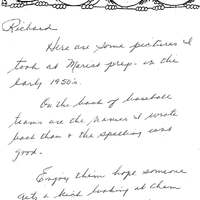 Richard
Here are some pictures I
took at Marist prep. in the
early 1950's.
On the back of baseball
teams are the names I wrote
back than & the spelling isnt
good.
Enjoy them hope someone
gets a kick looking at them